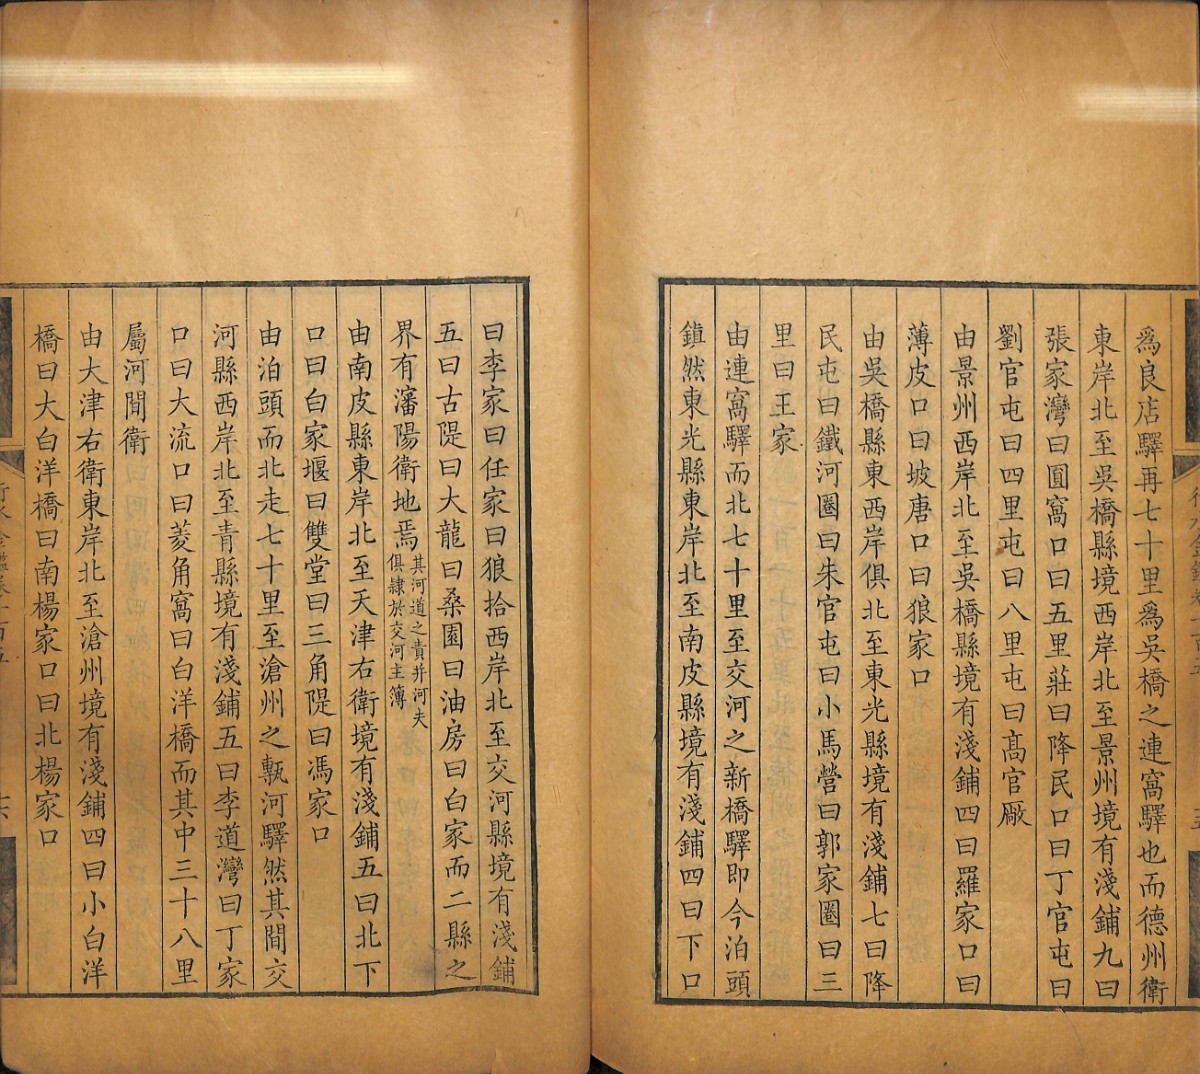 爲良店驛再七十里爲吳橋之連窩驛也而德州衛
東岸北至吳橋縣境西岸北至景州境有淺鋪九曰
張家灣曰圓窩口曰五里莊曰降民口曰丁官屯曰
劉官屯曰四里屯曰八里屯曰高官厰
由景州西岸北至吳橋縣境有淺鋪四曰羅家口曰
薄皮口曰坡唐口曰狼家口
由吳橋縣東西岸俱北至東光縣境有淺鋪七曰降
民屯曰鐵河圈曰朱官屯曰小馬營曰郭家圈曰三
里曰王家
由連窩驛而北七十里至交河之新橋驛即今泊頭
鎮然東光縣東岸北至南皮縣境有淺鋪四曰下口
曰李家曰任家曰狼拾西岸北至交河縣境有淺鋪
五曰古隄曰大龍曰桑園曰油房曰白家而二縣之
界有瀋陽衛地焉其河道之責并河夫
俱隷於交河主簿
由南皮縣東岸北至天津右衛境有淺鋪五曰北下
口曰白家堰曰雙堂曰三角隄曰馮家口
由泊頭而北走七十里至滄州之甎河驛然其間交
河縣西岸北至青縣境有淺鋪五曰李道灣曰丁家
口曰大流口曰菱角窩曰白洋橋而其中三十八里
屬河間衛
由大津右衛東岸北至滄州境有淺鋪四曰小白洋
橋曰大白洋橋曰南楊家口曰北楊家口